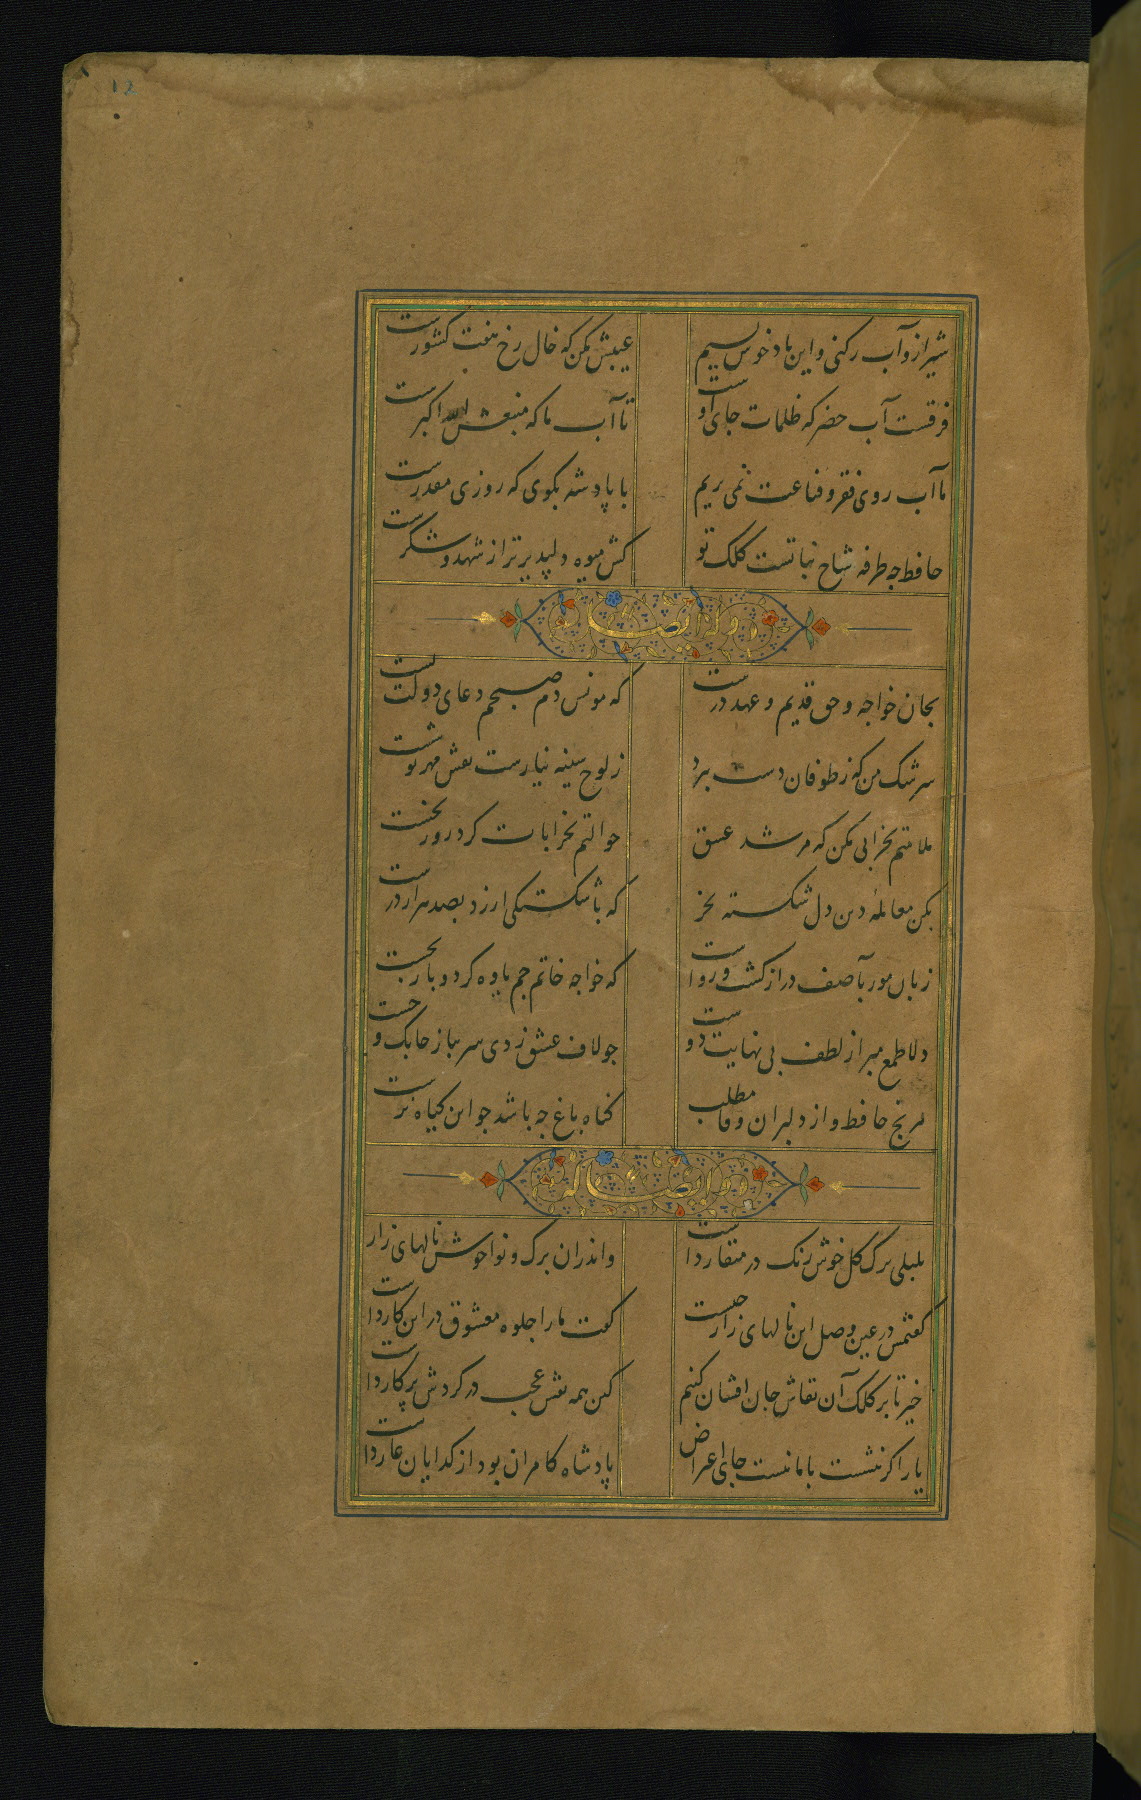 12
شیراز و آب رکنی و این باد خوش نسیم عیبش مکن که خال رخ هفت کشورست
فرقست آب خضر که ظلمات جای اوست تا آب ما که منبعش الله اکبرست
ما آب روی فقر و قناعت نمی بریم با پادشه بکوی که روزی مقدرست
حافظ چه طرفه شاخ نباتست کلک تو کش میوه دلپذیرتر از شهد و شکرست
وله ایضا
بجان خواجه و حق قدیم و عهد درست که مونس دم صبحم دعای دولت تست
سرشک من که ز طوفان دست برد ز لوح سینه نیارست نقش مهر تو شست
ملامتم بخرابی مکن که مرشد عشق حوالتم بخرابات کرد روز نخست
بکن معاملۀ وین دل شکسته بخر که با شکستکی ارزد بصد هزار درست
زبان مور بآصف دراز کشت و رواست که خواجه خاتم جم یاوه کرد و باز نجست
دلا طمع مبر از لطف بی نهایت دوست جو لاف عشق زدی سر بباز جابک و جست
مرنج حافظ و از دلبران وفا مطلب کناه باغ جه باشد جو این کیاه نرست
وله ایضا
بلبلی برک کل خوش رنک در منقار داشت واندران برک و نوا خوش نالهای زار داشت
کفتمش در عین وصل این نالهای زار جیست کفت ما را جلوه معشوق در این کار داشت
خیز تا بر کلک آن نقاش جان افشان کنیم کین همه نقش عجب در کردش پرکار داشت
یار اکر ننشست با ما نیست جای اعراض پادشاه کامران بود از کدایان عار داشت